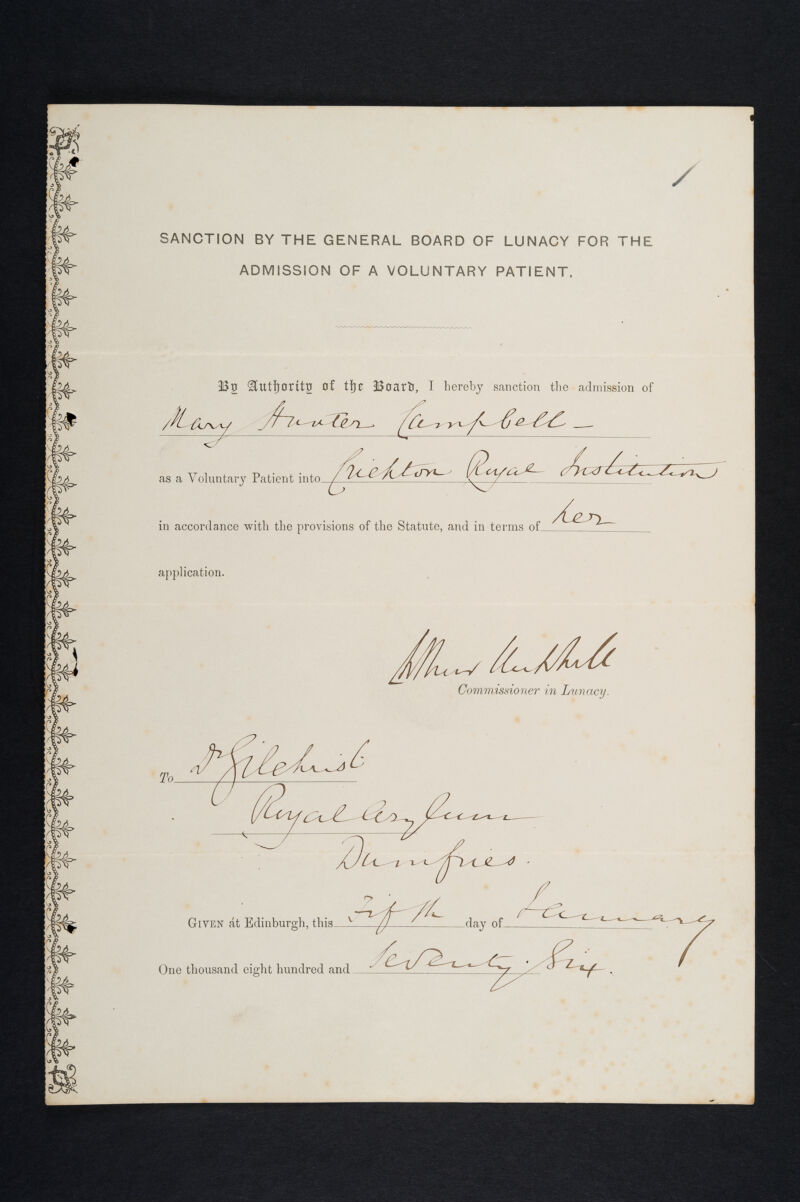 /
SANCTION BY THE GENERAL BOARD OF LUNACY FOR THE
ADMISSION OF A VOLUNTARY PATIENT.
By Authority of the Board, I hereby sanction the admission of
Mary Hunter Campbell —
as a Voluntary Patient into Crichton Royal Institution
in accordance with the provisions of the Statute, and in terms of her
application.
Arthur Mitchell
Commissioner in Lunacy.
To Dr Gilchrist
Royal Asylum
Dumfries.
GIVEN at Edinburgh, this Fifth day of January
One thousand eight hundred and seventy-Six.